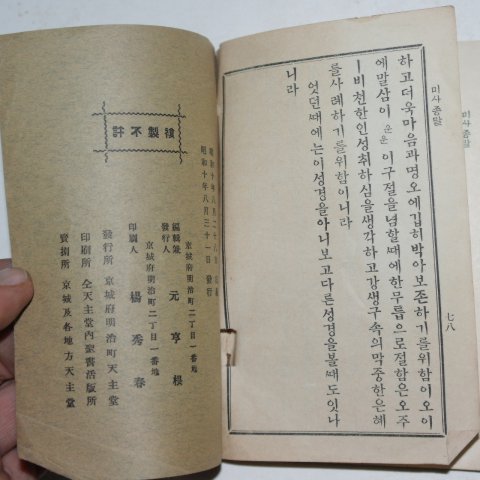 미사종말
하고더욱마음과명오에깁히박아보존하기를위함이오이
에말삼이 운운 이구절을념할ᄯᅢ에한무릅으로절함은오주
ㅣ비천한인성취하심을생각하고강생구속의막중한은혜
를사례하기를위함이니라
엇던ᄯᅢ에는이성경을아니보고다른성경을볼ᄯᅢ도잇나
니라
七八
미사종말
複製不許
昭和十年八月二十八日
昭和十年八月三十一日 發行
京城府明治町二丁目一番地
編輯兼
發行人 元亨根
京城府明治町二丁目一番地
印刷人 楊秀春
發行所 京城府明治町天主堂
印刷所 仝天主堂內聖書活版所
賣捌所 京城及各地方天主堂